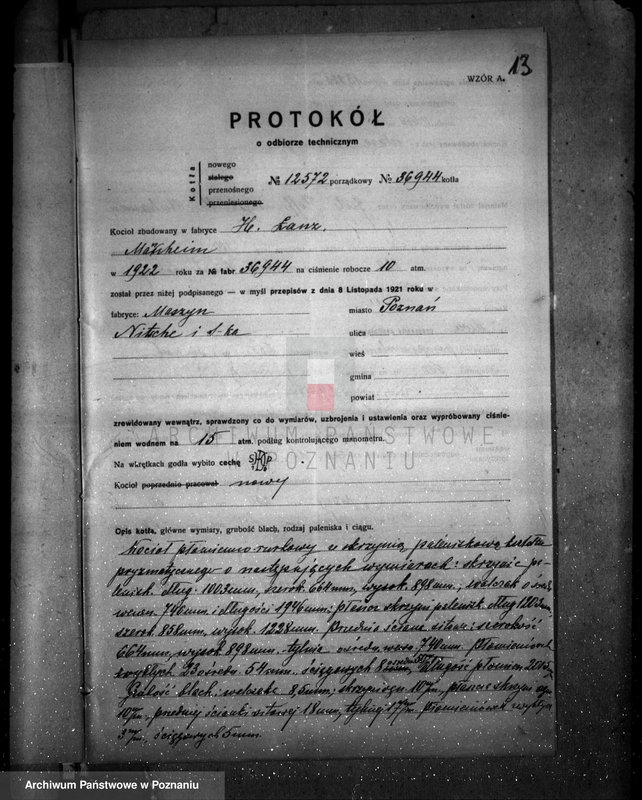 13
WZÓR A.
PROTOKÓŁ
o odbiorze technicznym
Kotła
nowego
stałego
przenośnego
przeniesionego
№ 12572 porządkowy № 36944 kotła
Kocioł zbudowany w fabryce H. Lanz,
Manheim
w 1922 roku za № fabr. 36944 na ciśnienie robocze 10 atm.
został przez niżej podpisanego — w myśl przepisów z dnia 8 Listopada 1921 roku w
fabryce: Maszyn miasto Poznań
Nitsche i S-ka ulica
wieś
gmina
powiat
zrewidowany wewnątrz, sprawdzony co do wymiarów, uzbrojenia i ustawienia oraz wypróbowany ciśnie-
niem wodnem na 15 atm. podług kontrolującego manometru.
Na wkrętkach godła wybito cechę
Kocioł poprzednio pracował nowy
ARCHIWUM PAŃSTWOWE
W POZNANIU
Opis kotła, główne wymiary, grubość blach, rodzaj paleniska i ciągu.
Kocioł płomienno-rurkowy w skrzynią paleniskową kształtu
pryzmatycznego o następujących wymiarach: skrzynie pa-
lenisk. dług. 1003mm, szerok. 664mm, wysok. 898mm,
746mm i długości 1946mm; płaszcz skrzyni palenisk. dług.
szerok. 858mm, wysok. 1228mm. Przednia ściana sitowa: szerokość
664mm, wysok. 898mm. tylnia 740mm. Płomieniówek
zwykłych 54mm. ściągowych 8 Długość płomien.
Grubość blach: walczaka 8,5mm; skrzyni ogn. 10mm, płaszcza skrzyni ogn.
10mm, przedniej ścianki sitowej 18mm, tylnej 17mm. Płomieniówek zwykłych
3mm, ściągowych 5mm.
Archiwum Państwowe w Poznaniu